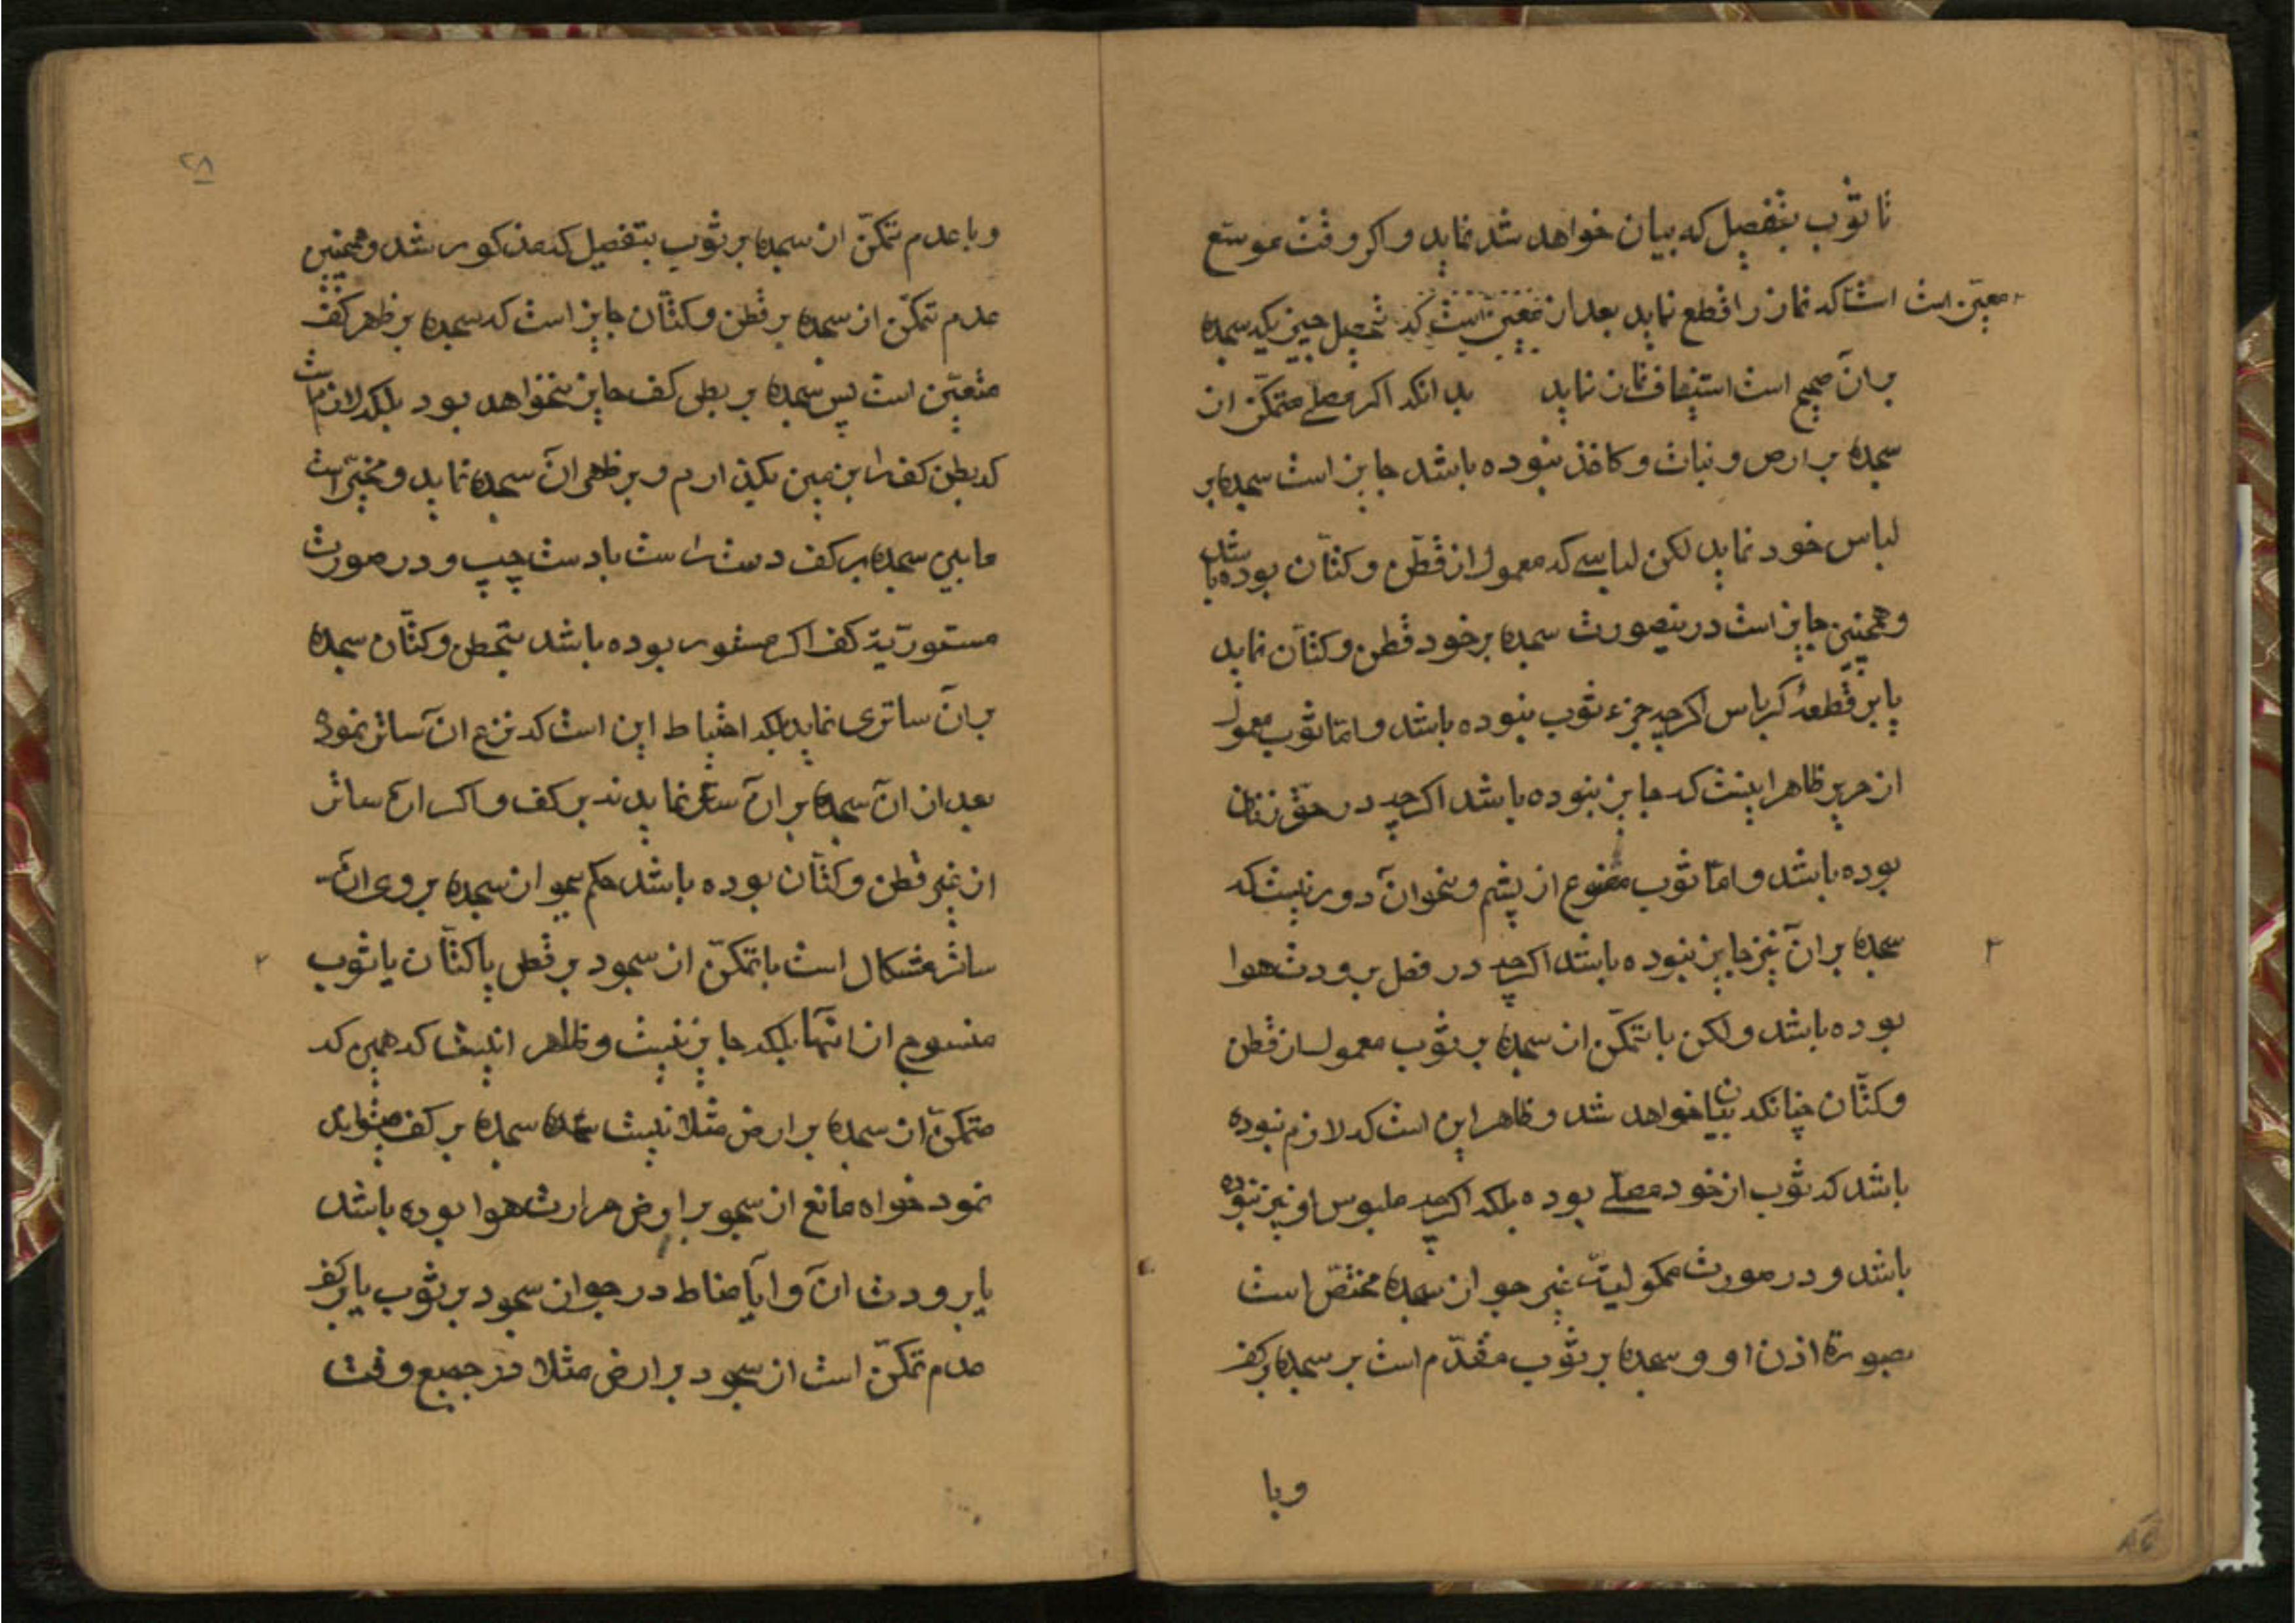 تا ثوب بتفصیل که بیان خواهد شد نماید و اکر وقت موسّع
معیّن است است که نماز را قطع نماید بعد از معیّن است که تحصیل چیزیکه سجده
بر آن صحیح است استیناف نماز نماید بدانکه اکر مصلّے متمکّن از
سجده بر ارض و نبات و کاغذ نبوده باشد جایز است سجده بر
لباس خود نماید لکن لباسے که معمول از قطن و کتّان بوده باشد
و همچنین جایز است درینصورت سجده بر خود قطن و کتّان نماید
یا بر قطعهٔ کرباس اکرچه جزء ثوب نبوده باشد و امّا ثوب معمول
از حریر ظاهر اینست که جایز نبوده باشد اکرچه در حقّ زنان
بوده باشد و امّا ثوب مصنوع از پشم و نحو آن دور نیست که
سجده بر آن نیز جایز نبوده باشد اکرچه در فصل برودت هوا
بوده باشد و لکن با تمکّن از سجده بر ثوب معمول از قطن
و کتّان چنانکه بیان خواهد شد و ظاهر این است که لازم نبوده
باشد که ثوب از خود مصلّے بوده بلکه اکرچه ملبوس او نیز نبوده
باشد و در صورت مملوکیت غیر جواز سجده مختصّ است
بصورة اذن او و سجده بر ثوب مقدّم است بر سجده بر کف
و با
۲۸
و با عدم تمکّن از سجده بر ثوب بتفصیل که مذکور شد و همچنین
عدم تمکّن از سجده بر قطن و کتّان جایز است که سجده بر ظهر کف
متعیّن است پس سجده بر بطن کف جایز نخواهد بود بلکه لازم است
که بطن کف را بزمین بکذارم و بر ظهر آن سجده نماید و مخیّر است
مابین سجده بر کف دست راست یا دست چپ و در صورت
مستوریّة کف اکر مستور بوده باشد بقطن و کتّان سجده
بر آن ساتری نماید بلکه احتیاط این است که نزع ان ساتر نموده
بعد از آن سجده بر آن نماید نه بر کف و اکر آن ساتر
از غیر قطن و کتّان بوده باشد حکم بجواز سجده بر روی آن
ساتر مشکل است با تمکّن از سجود بر قطن یا کتّان یا ثوب
منسوج از انها بلکه جایز نیست و ظاهر انیست که همین که
متمکّن از سجده بر ارض مثلا نیست سجده بر کف میتواند
نمود خواه مانع از سجود بر ارض حرارت هوا بوده باشد
یا برودت آن و ایا مناط در جواز سجود بر ثوب یا بر کف
عدم تمکّن است از سجود بر ارض مثلا در جمیع وقت